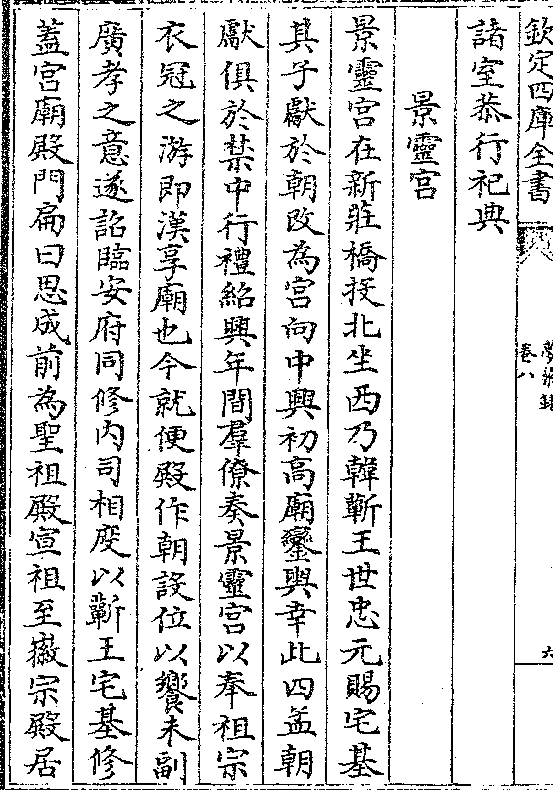 欽定四庫全書
夢粱録
卷八
六
諸室恭行祀典
景靈宫
景靈宫在新莊橋投北坐西乃韓蘄王世忠元賜宅基
其子獻於朝改為宫向中興初高廟鑾輿幸此四孟朝
獻俱於禁中行禮紹興年間羣僚奏景靈宫以奉祖宗
衣冠之游即漢享廟也今就便殿作朝設位以饗未副
廣孝之意遂詔臨安府同修内司相度以蘄王宅基修
蓋宫廟殿門扁曰思成前為聖祖殿宣祖至徽宗殿居